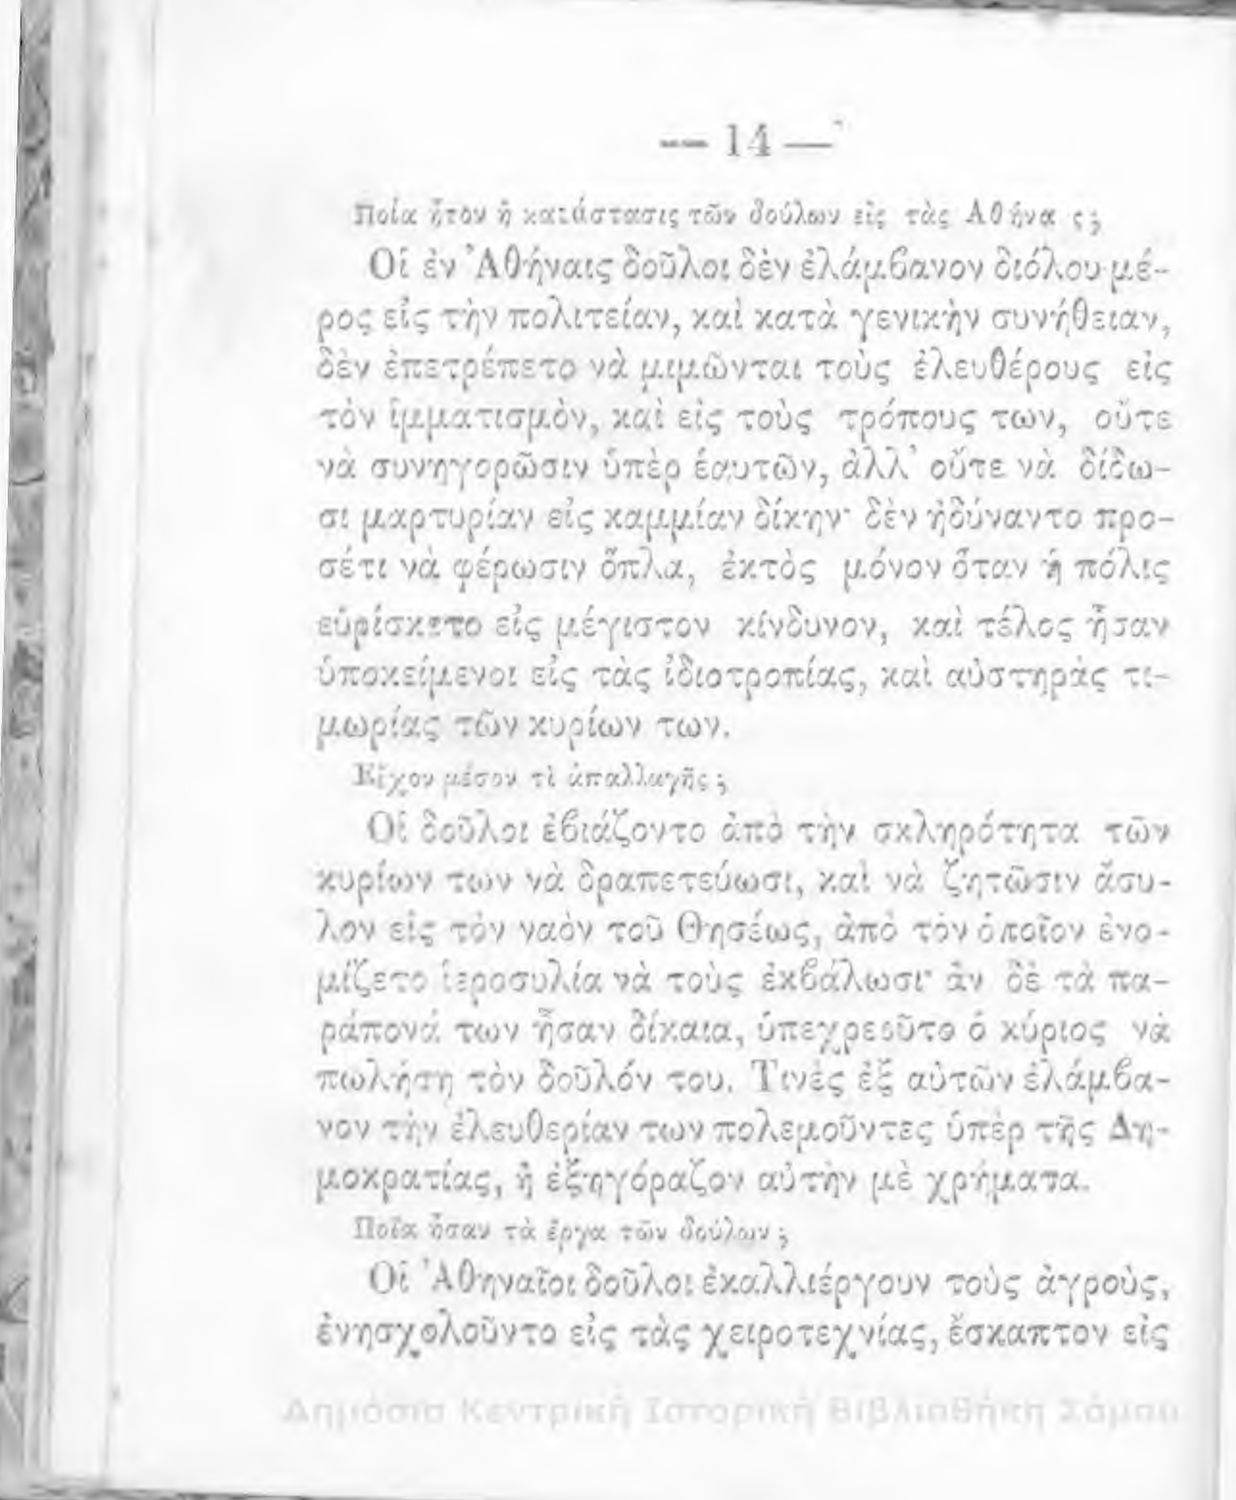 — 14 —
Ποία ἦτον ἡ κατάστασις τῶν δούλων εἰς τὰς Ἀθήνας;
Οἱ ἐν Ἀθήναις δοῦλοι δὲν ἐλάμβανον διόλου μέ-
ρος εἰς τὴν πολιτείαν, καὶ κατὰ γενικὴν συνήθειαν,
δὲν ἐπετρέπετο νὰ μιμῶνται τοὺς ἐλευθέρους εἰς
τὸν ἱμματισμὸν, καὶ εἰς τοὺς τρόπους των, οὔτε
νὰ συνηγορῶσιν ὑπὲρ ἑαυτῶν, ἀλλ’ οὔτε νὰ δίδω-
σι μαρτυρίαν εἰς καμμίαν δίκην· δὲν ἠδύναντο προ-
σέτι νὰ φέρωσιν ὅπλα, ἐκτὸς μόνον ὅταν ἡ πόλις
εὑρίσκετο εἰς μέγιστον κίνδυνον, καὶ τέλος ἦσαν
ὑποκείμενοι εἰς τὰς ἰδιοτροπίας, καὶ αὐστηρὰς τι-
μωρίας τῶν κυρίων των.
Εἶχον μέσον τὶ ἀπαλλαγῆς;
Οἱ δοῦλοι ἐβιάζοντο ἀπὸ τὴν σκληρότητα τῶν
κυρίων των νὰ δραπετεύωσι, καὶ νὰ ζητῶσιν ἄσυ-
λον εἰς τὸν ναὸν τοῦ Θησέως, ἀπὸ τὸν ὁποῖον ἐνο-
μίζετο ἱεροσυλία νὰ τοὺς ἐκβάλωσι· ἂν δὲ τὰ πα-
ράπονά των ἦσαν δίκαια, ὑπεχρεοῦτο ὁ κύριος νὰ
πωλήσῃ τὸν δοῦλόν του. Τινὲς ἐξ αὐτῶν ἐλάμβα-
νον τὴν ἐλευθερίαν των πολεμοῦντες ὑπὲρ τῆς Δη-
μοκρατίας, ἢ ἐξηγόραζον αὐτὴν μὲ χρήματα.
Ποῖα ἦσαν τὰ ἔργα τῶν δούλων;
Οἱ Ἀθηναῖοι δοῦλοι ἐκαλλιέργουν τοὺς ἀγροὺς,
ἐνησχολοῦντο εἰς τὰς χειροτεχνίας, ἔσκαπτον εἰς
Δημόσια Κεντρική Ιστορική Βιβλιοθήκη Σάμου